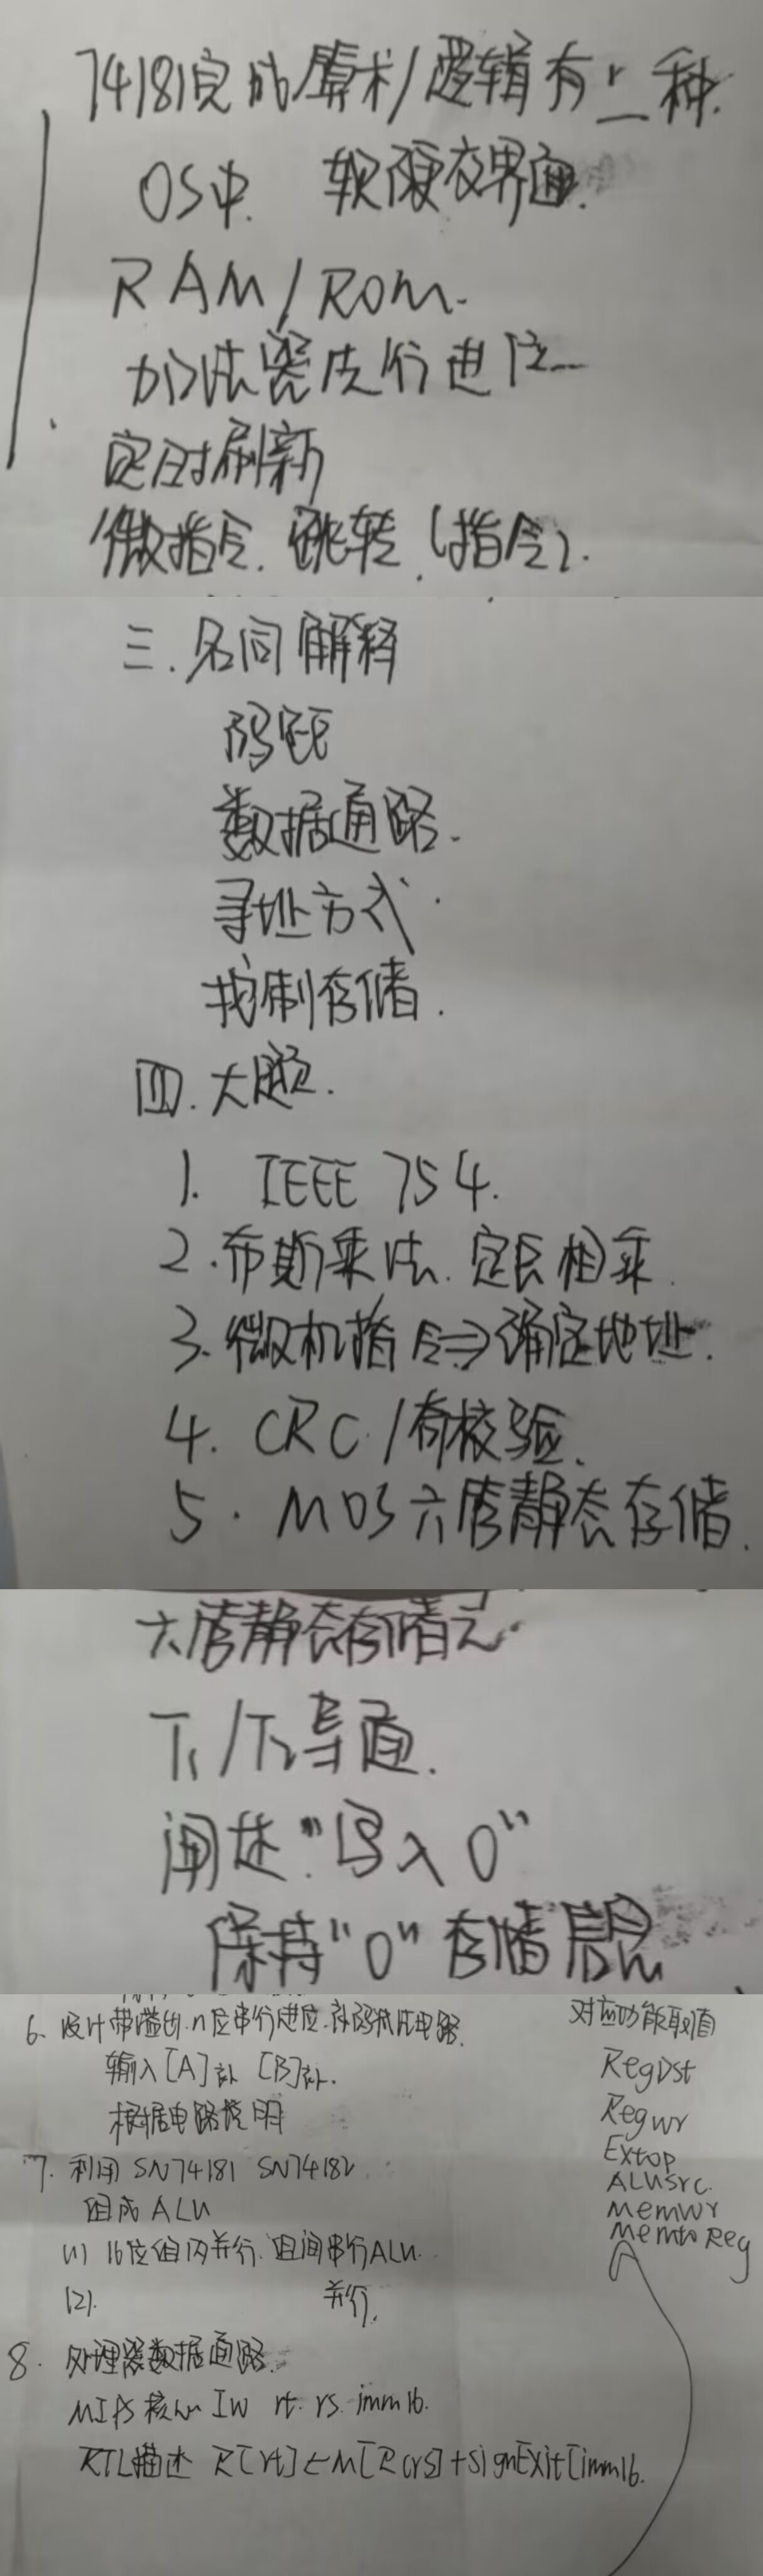 74181完成算术/逻辑有二种.
OS中. 软硬交界面.
RAM/ROM.
加法器先行进位
定时刷新
微指令. 跳转.(指令).
三.名词解释
码距
数据通路.
寻址方式.
控制存储.
四.大题.
1. IEEE 754.
2.布斯乘法.定长相乘.
3.微机指令⇒确定地址.
4. CRC/奇校验.
5. MOS六管静态存储.
六管静态存储元.
T1/T2导通.
阐述"写入0"
保持"0"存储信息
6. 设计带溢出.n位串行进位.补码加法电路.
输入[A]补 [B]补.
根据电路说明
7. 利用 SN74181 SN74182
组成ALU
(1) 16位组内并行.组间串行ALU.
(2). 并行.
8. 处理器数据通路.
MIPS核心 Iw rt. rs. imm16.
RTL描述 R[rt]←M[R[rs]+signExit[imm16.
对应功能取值
RegDst
Regwr
Extop
ALUsrc.
MemWr
MemtoReg